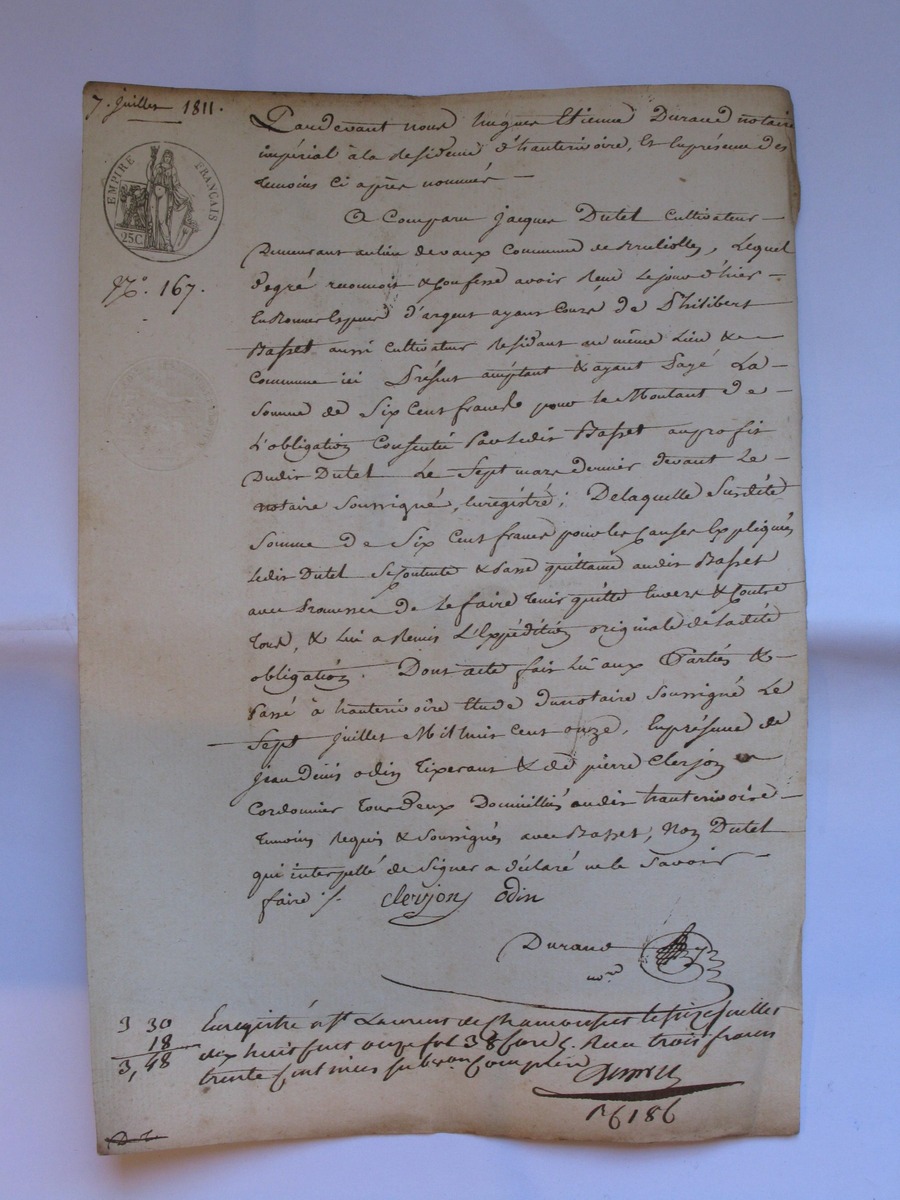 7. juillet 1811.
EMPIRE FRANÇAIS
25C
N.º 167.
Pardevant nous hugues Etienne Durand notaire
impérial à la Residence d'hauterivoire, Et Enprésence des
temoins Ci après nommés —
A Comparu jacques Dutel Cultivateur —
Demeurant aulieu devaux Commune de Brullolles, Lequel
Degré reconnoit & Confesse avoir Recu Lejour d'hier —
En Bonnes Espèces d'argent ayant Cours de Philibert
Basset aussi Cultivateur Residant au même Lieu &
Commune ici Présent acceptant & ayant Payé La —
Somme de Six Cent francs pour le Montant De —
L'obligation Consentie Par Ledit Basset auprofit
Dudit Dutel Le Sept mars dernier devant Le —
notaire Soussigné, Enregistré ; Delaquelle Susdite
Somme de Six Cent francs pour les Causes Expliquées
Ledit Dutel Se Contente & Passe quittance audit Basset
avec Promesse de Le faire tenir quitte Envers & Contre
tous, & Lui a Remis L'Expédition originale de Ladite
obligation. Dont acte fait Lû aux Parties & —
Passé à hauterivoire Etude dunotaire Soussigné Le
Sept juillet Mil huit Cent onze, Enprésence de
jean Denis odin tixerant & de pierre Clerjon
Cordonnier tous Deux Domiciliés audit hauterivoire —
temoins Requis & Soussignés avec Basset, Non Dutel
qui interpellé de Signer a déclaré ne le Savoir —
faire ./. Clerjon odin
Durand
nre
3 30
18
3,48
Enregistré à St Laurent de Chamousset le seize juillet
dix huit cent onze fol 38 Recu trois francs
trente centimes subvon Comprise
R 6186